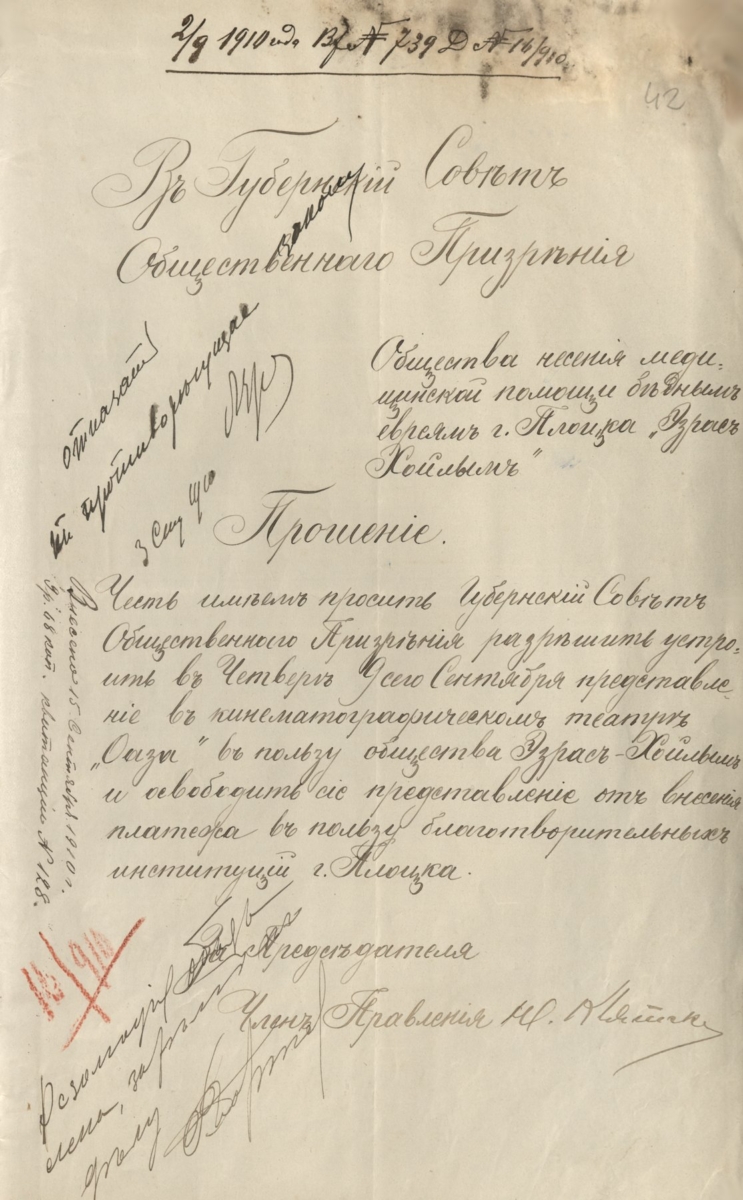 2/9 1910 года Вх № 739 Д № 16/910 г.
42
Въ Губернскій Совѣтъ
Общественнаго Призрѣнія
Общества несенія меди-
цинской помощи бѣднымъ
евреямъ г. Плоцка „Эзрасъ
Хойлымъ"
отказать
3 Сен 1910
Прошеніе.
Честь имѣемъ просить Губернскій Совѣтъ
Общественнаго Призрѣнія разрѣшить устро-
ить въ Четвергъ 9 сего Сентября представле-
ніе въ кинематографическомъ театрѣ
„Оаза" въ пользу общества Эзрасъ-Хойлымъ
и освободить сіе представленіе отъ внесенія
платежа въ пользу благотворительныхъ
институцій г. Плоцка.
Внесено 15 Сентября 1910 г.
3 р. 68 коп. квитанція № 128.
16/910
Предсѣдателя
Членъ Правленія Ю.